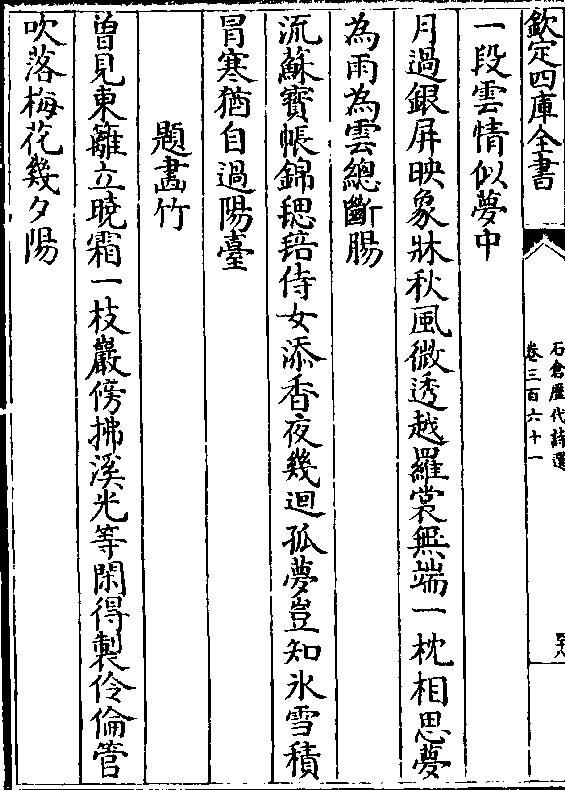 欽定四庫全書
石倉歷代詩選
卷三百六十一
一段雲情似夢中
月過銀屏映象牀秋風微透越羅裳無端一枕相思夢
為雨為雲總斷腸
流蘇寶帳錦䅲䅧侍女添香夜幾迴孤夢豈知氷雪積
冐寒猶自過陽臺
題畵竹
曽見東籬立曉霜一枝巖傍拂溪光等閑得製伶倫管
吹落梅花幾夕陽